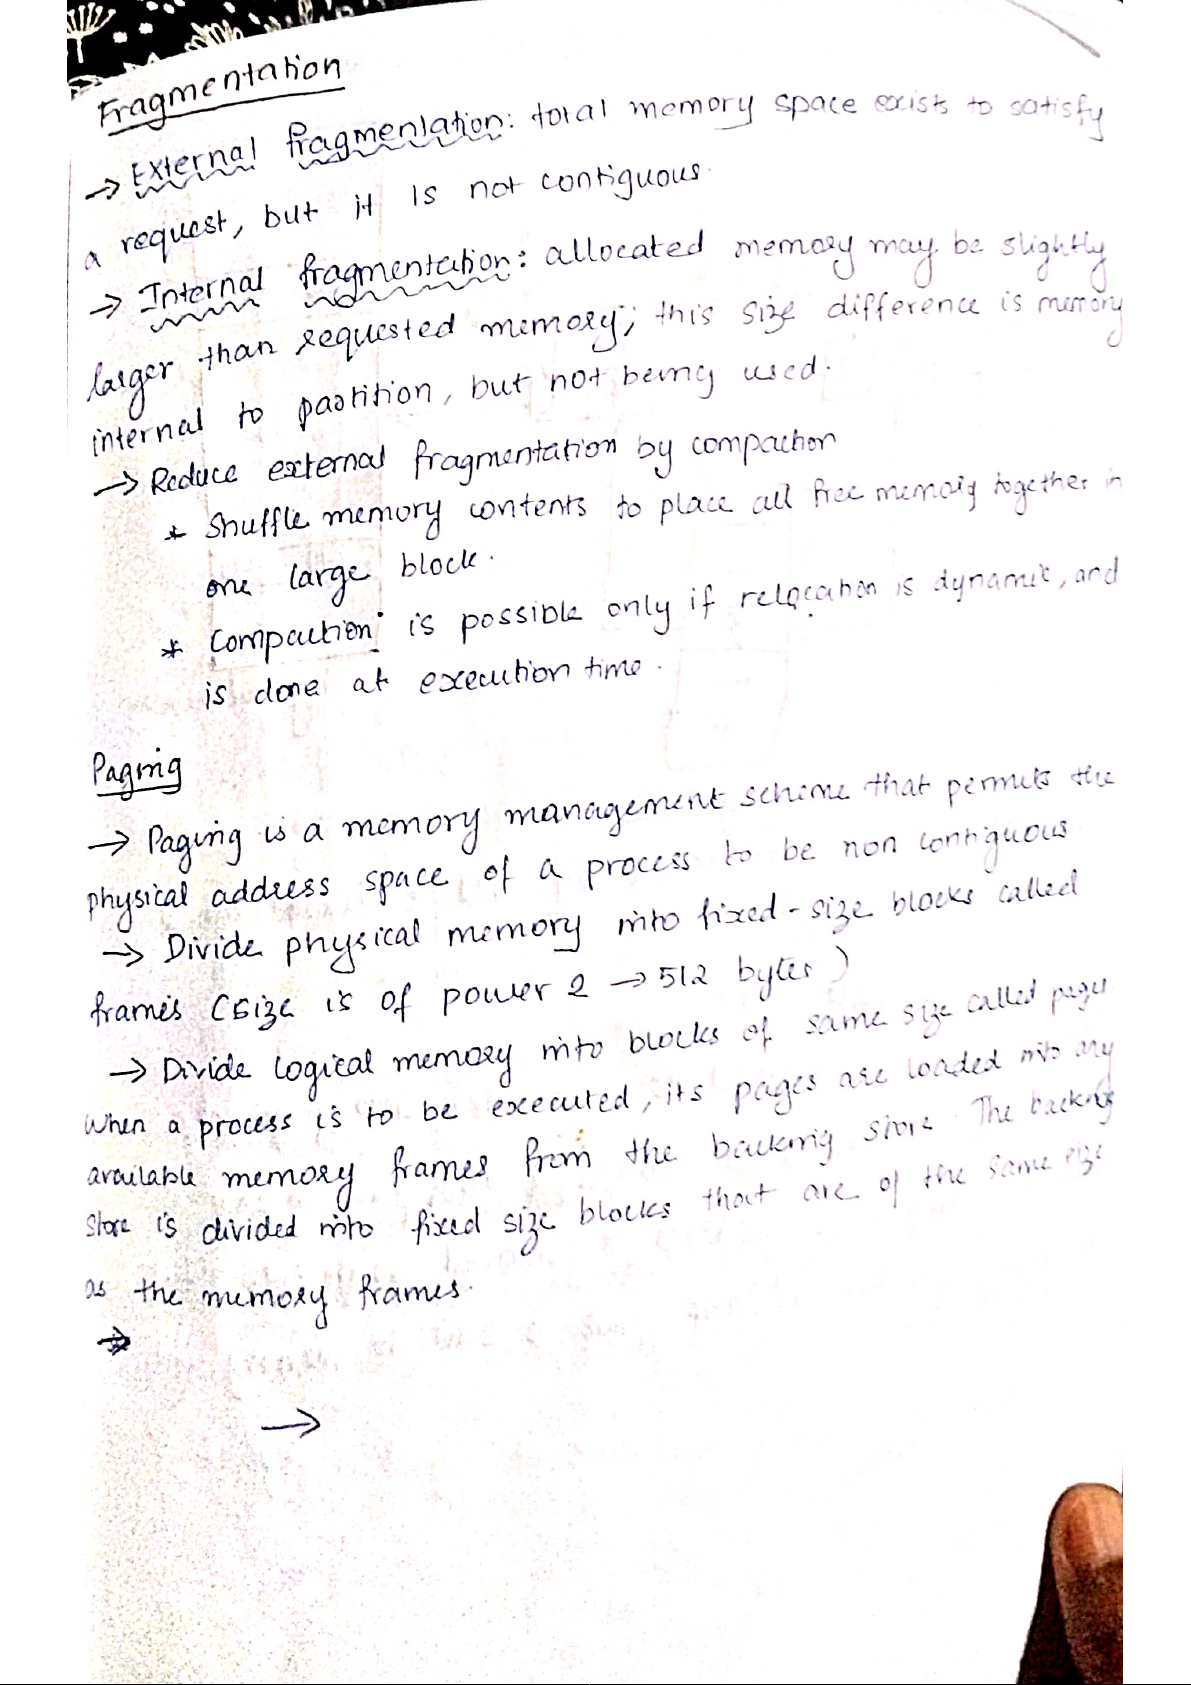 Fragmentation
→ External fragmentation: total memory space exists to satisfy
a request, but it is not contiguous.
→ Internal fragmentation: allocated memory may be slightly
larger than requested memory; this size difference is memory
internal to partition, but not being used.
→ Reduce external fragmentation by compaction
* Shuffle memory contents to place all free memory together in
one large block.
* Compaction is possible only if relocation is dynamic, and
is done at execution time.
Paging
→ Paging is a memory management scheme that permits the
physical address space of a process to be non contiguous
→ Divide physical memory into fixed-size blocks called
frames (size is of power 2 → 512 bytes)
→ Divide logical memory into blocks of same size called pages
When a process is to be executed, its pages are loaded into any
available memory frames from the backing store. The backing
store is divided into fixed size blocks that are of the same size
as the memory frames.
→
→